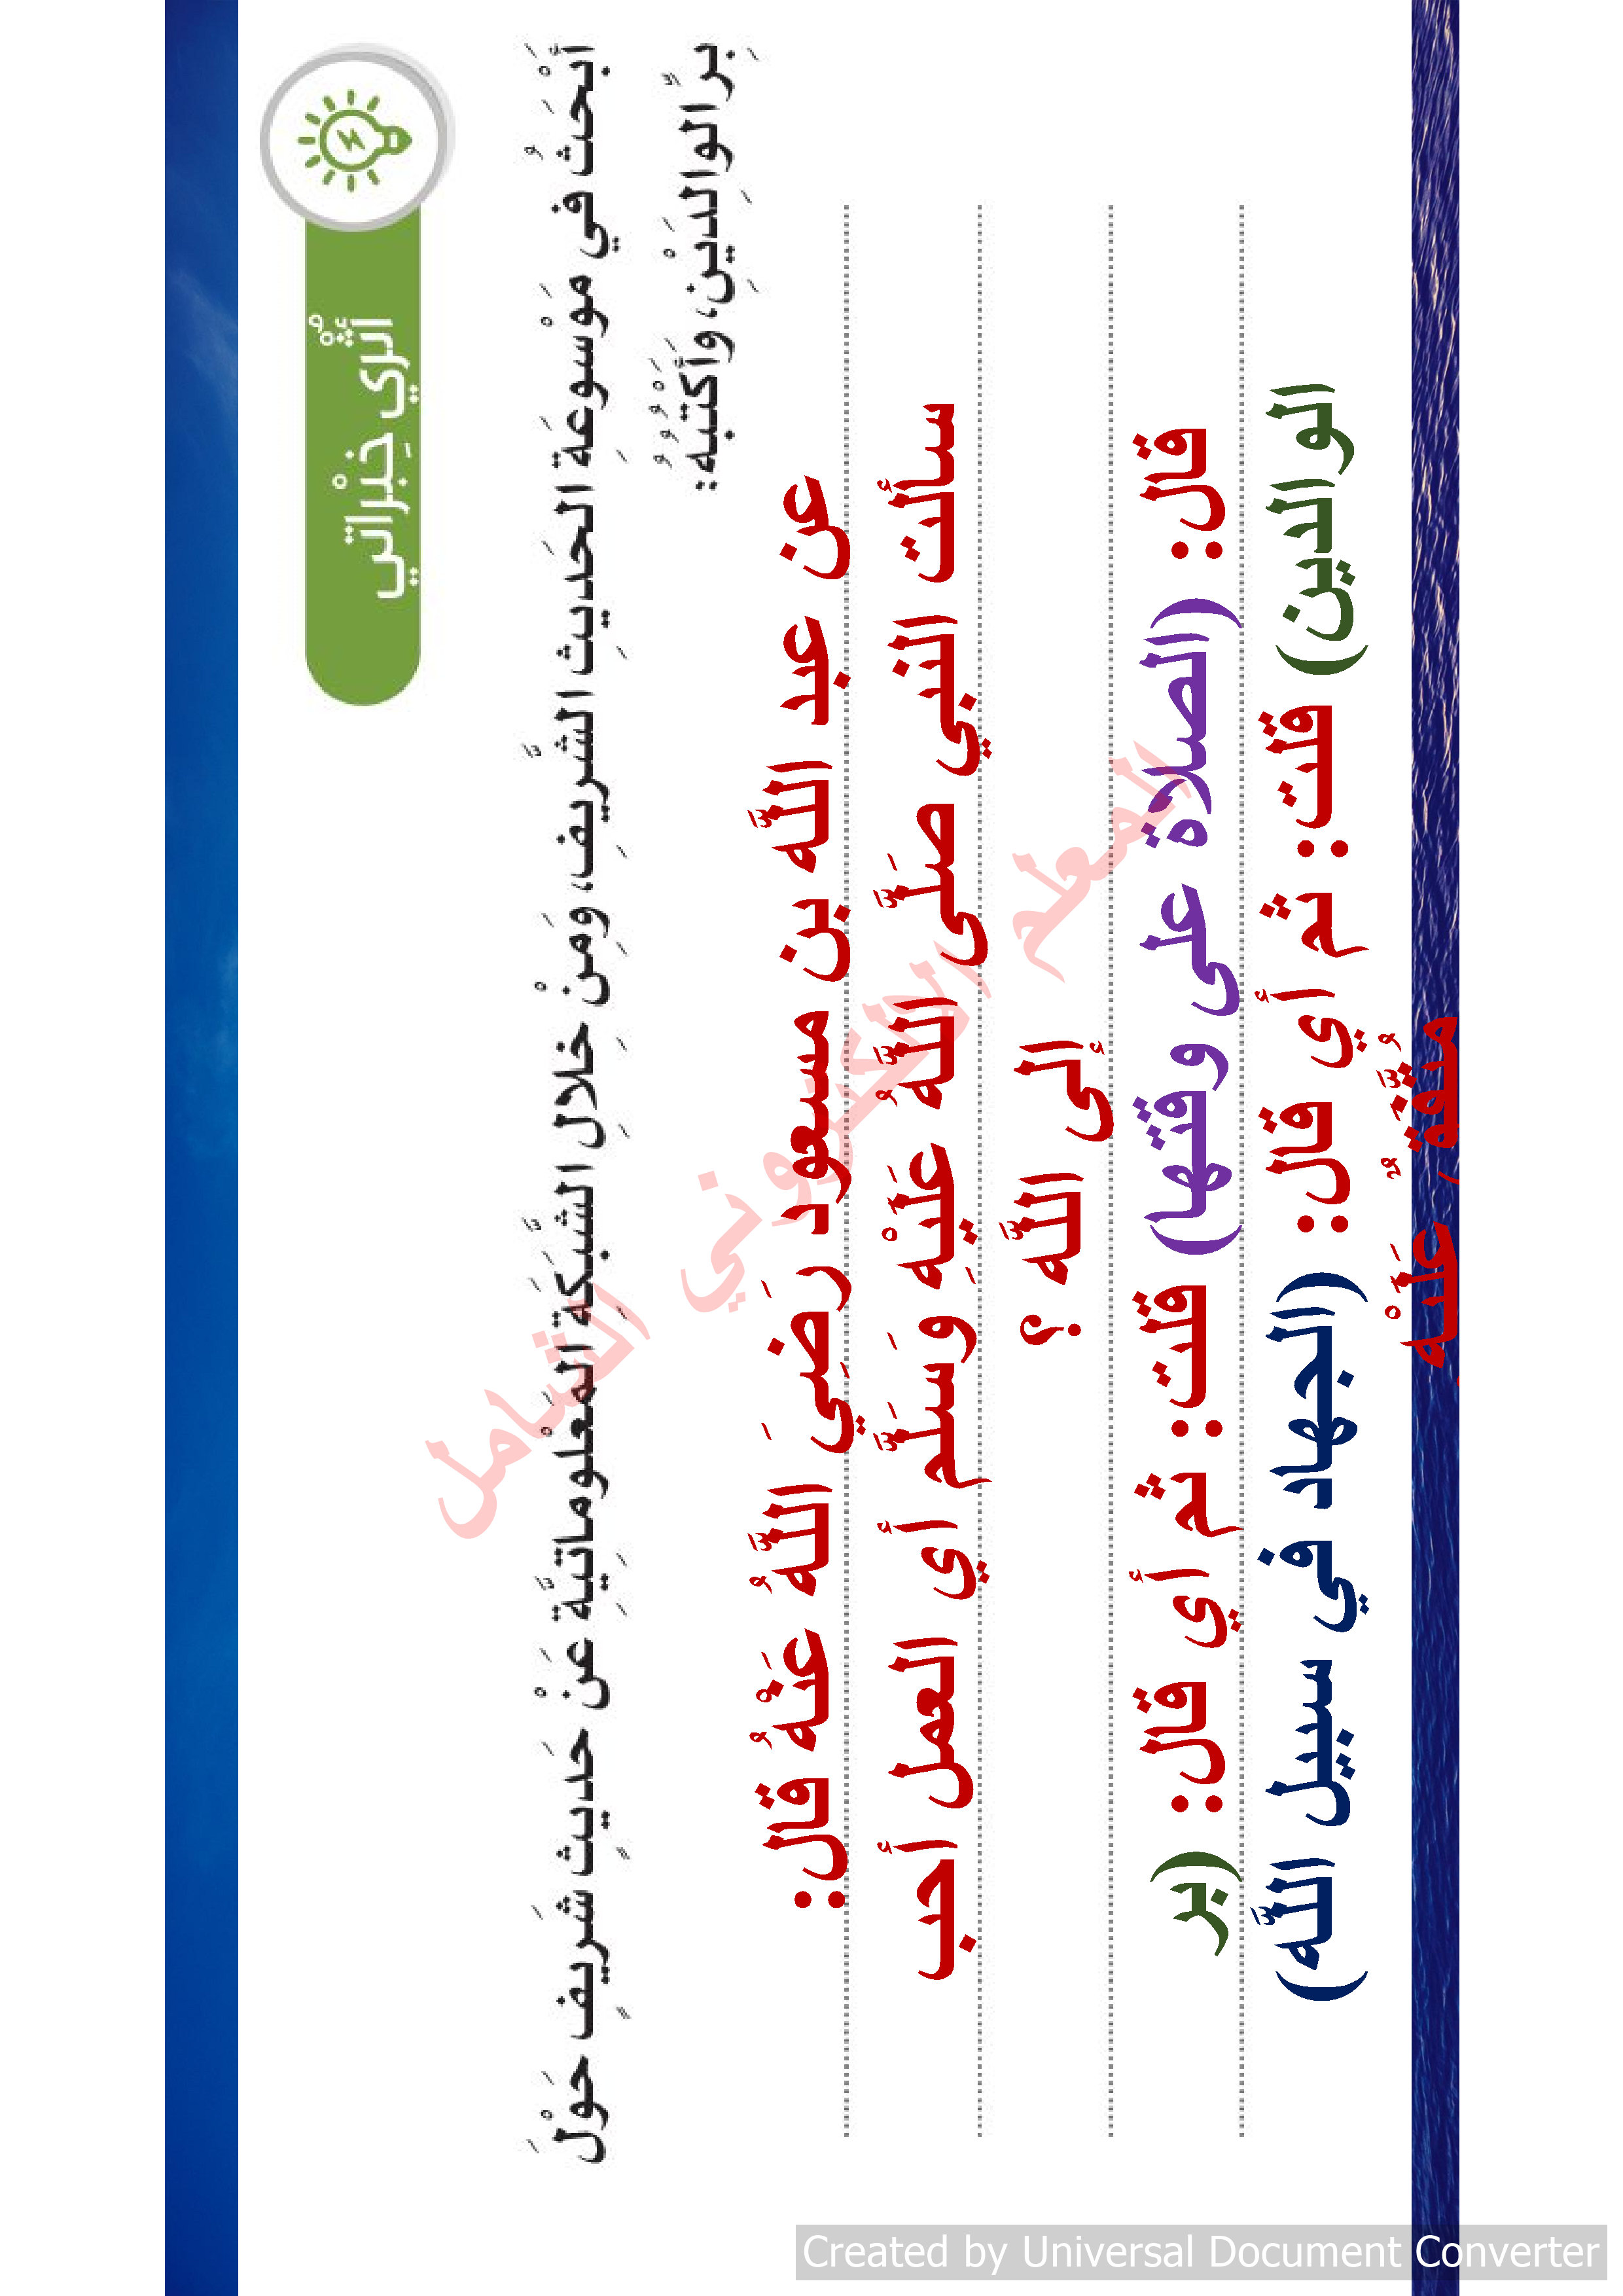 أُثْري خِبْراتي
أَبْحَثُ في مَوْسوعَةِ الحَديثِ الشَّريفِ، وَمِنْ خِلالِ الشَّبَكَةِ المَعْلوماتِيَّةِ عَنْ حَديثٍ شَريفٍ حَوْلَ
بِرِّ الوالِدَيْنِ، وَأَكْتُبُهُ:
عن عبد الله بن مسعود رَضِيَ اللَّهُ عَنْهُ قال:
سألت النبي صَلَّى اللَّهُ عَلَيْهِ وَسَلَّم أي العمل أحب
إلى اللَّه ؟
قال: (الصلاة على وقتها) قلت: ثم أي قال: (بر
الوالدين) قلت: ثم أي قال: (الجهاد في سبيل اللَّه)
مُتَّفَقٌ عَلَيْه
المعلم الالكتروني الشامل
Created by Universal Document Converter